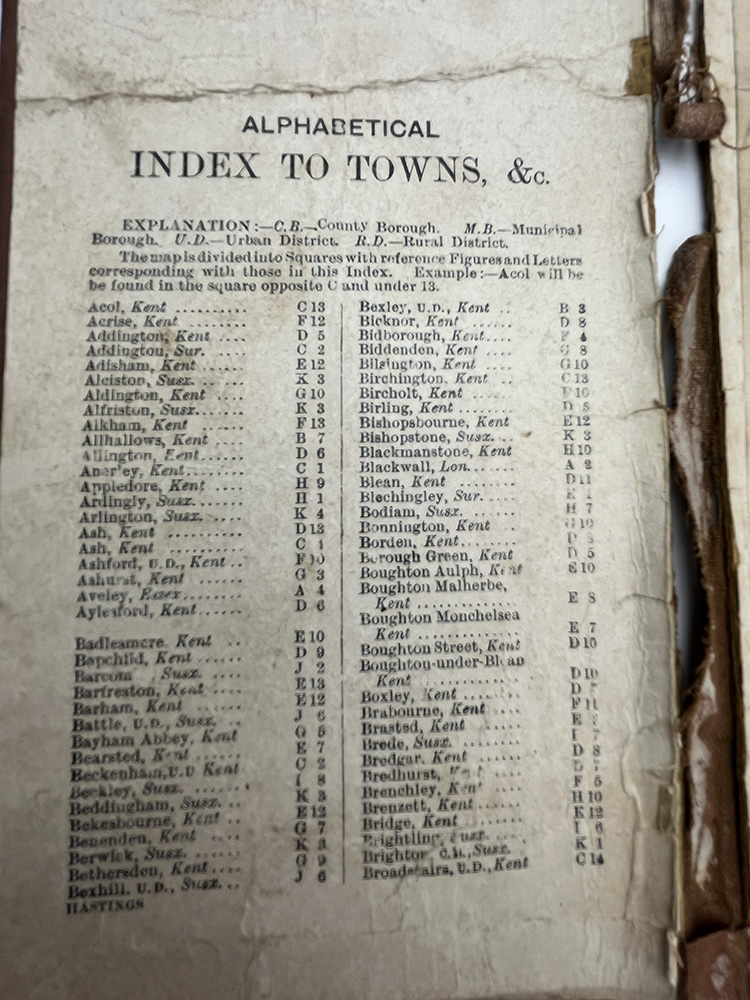 ALPHABETICAL
INDEX TO TOWNS, &c.
EXPLANATION:—C.B.—County Borough. M.B.—Municipal
Borough. U.D.—Urban District. R.D.—Rural District.
The map is divided into Squares with reference Figures and Letters
corresponding with those in this Index. Example:—Acol will be
be found in the square opposite C and under 13.
Acol, Kent .......... C 13
Acrise, Kent ........ F 12
Addington, Kent .... D 5
Addington, Sur. .... C 2
Adisham, Kent ...... E 12
Alciston, Susx. ... K 3
Aldington, Kent .... G 10
Alfriston, Susx. ..... K 3
Alkham, Kent ...... F 13
Allhallows, Kent .... B 7
Allington, Kent ..... D 6
Anerley, Kent ........ C 1
Appledore, Kent .... H 9
Ardingly, Susx. ..... H 1
Arlington, Susx. .... K 4
Ash, Kent .......... D 13
Ash, Kent ..........
Ashford, U.D., Kent .. F 10
Ashurst, Kent ...... G 3
Aveley, Essex ....... A 4
Aylesford, Kent ...... D 6
Badlesmere, Kent .. E 10
Bapchild, Kent ...... D 9
Susx. .... J 2
Barfreston, Kent .... E 13
Barham, Kent ...... E 12
Battle, U.D., Susx. .. J 6
Bayham Abbey, Kent G 5
Bearsted, Kent ..... E 7
Beckenham, U.D. Kent C 2
Beckley, Susx. ..... I 8
Beddingham, Susx. .. K 3
Bekesbourne, Kent .. E 12
Benenden, Kent .... G 7
Berwick, Susx. ...... K 3
Bethersden, Kent .... G 9
Bexhill, U.D., Susx. .. J 6
HASTINGS
Bexley, U.D., Kent .. B 3
Bicknor, Kent ...... D 8
Bidborough, Kent.... 4
Biddenden, Kent .... G 8
Bilsington, Kent .... G 10
Birchington, Kent .. C 13
Bircholt, Kent ...... F 10
Birling, Kent ........ D 5
Bishopsbourne, Kent E 12
Bishopstone, Susx. .. K 3
Blackmanstone, Kent H 10
Blackwall, Lon. ...... A 2
Blean, Kent ........ D 11
Blechingley, Sur. ....
Bodiam, Susx. ...... H 7
Bonnington, Kent .. G 10
Borden, Kent........
Borough Green, Kent D 5
Boughton Aulph, Kent E 10
Boughton Malherbe,
Kent ............ E 8
Boughton Monchelsea
Kent ............ E 7
Boughton Street, Kent D 10
Boughton-under-Blean
Kent ............ D 10
Boxley, Kent ........ D
Brabourne, Kent .... F 11
Brasted, Kent ...... E
Brede, Susx. ........ I 7
Bredgar, Kent ...... D 8
Bredhurst, Kent .... D
Brenchley, Kent .... F 5
Brenzett, Kent ...... H 10
Bridge, Kent ........ E 12
Brightling, Susx. .... I 6
Brighton, Susx. K 1
Broadstairs, U.D., Kent C 14